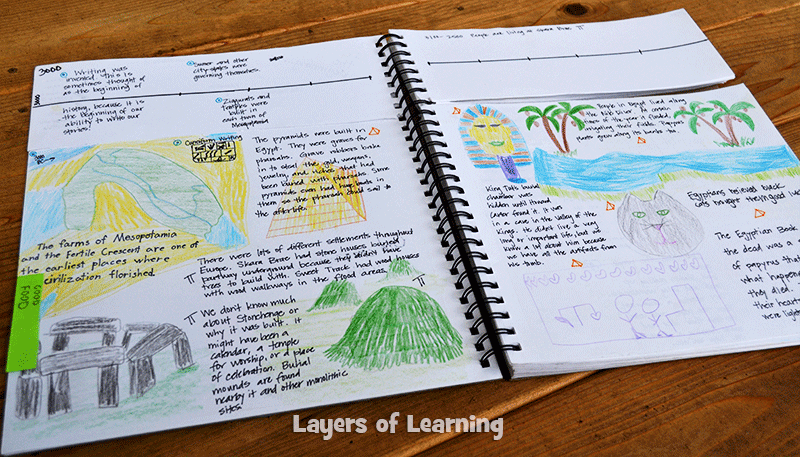 3000
Writing was
invented. This is
sometimes thought of
as the beginning of
Sumer and other
city-states were
governing themselves.
3000
history, because it is
the beginning of our
ability to write our
stories!
Ziggurats and
temples were
built in
each town of
Mesopotamia
Cuneiform Writing
The pyramids were built in
Egypt. They were graves for
pharaohs. Grave robbers broke
in to steal the gold, weapons,
jewelry and riches that had
been buried with Some
pyramids even had in
them so the pharaoh could sail to
the afterlife.
The farms of Mesopotamia
and the Fertile Crescent are one of
the earliest places where
civilization florished.
There were lots of different settlements throughout
Europe. Skara Brae had stone houses buried
partway underground because they didn't have
trees to build with. Sweet Track had wood houses
with wood walkways in the flood areas.
We don't know much
about Stonehenge or
why it was built. It
might have been a
calendar, a temple
for worship, or a place
of celebration. Burial
mounds are found
nearby it and other monolithic
sites.
GOOD
FOOD
3100-2500 People are living at Skara Brae
People in Egypt lived along
the Nile River. At once
in the year it flooded,
irrigating their fields. Papyrus
plants grow along its banks too.
King Tut's burial
chamber was
hidden until Howard
Carter found it. It was
in a cave in the Valley of the
Kings. He didn't live a very
long or important life, but we
know a lot about him because
we have all the artifacts from
his tomb.
Egyptians believed black
cats brought them good luck
The Egyptian Book
the dead was a
of papyrus that
what happened
they died.
their hearts
were light
Layers of Learning